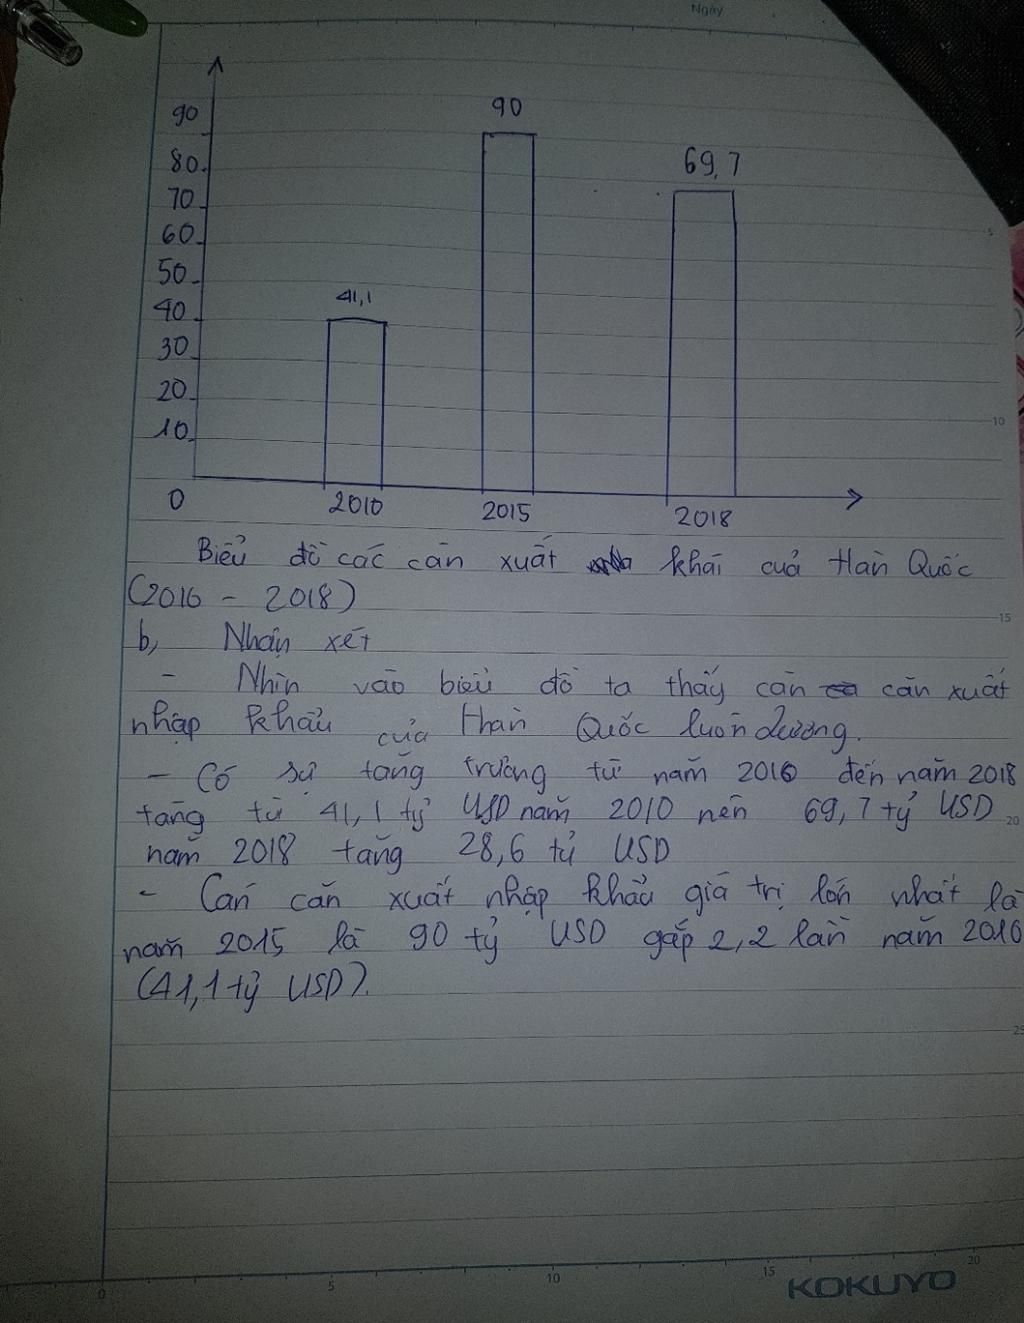 Ngày
90
80
70
60
50
40
30
20
10
0
41,1
90
69,7
2010
2015
2018
Biểu đồ các cán xuất khải của Hàn Quốc
(2010 - 2018)
b, Nhận xét
- Nhìn vào biểu đồ ta thấy cán cân xuất
nhập khẩu của Hàn Quốc luôn dương.
- Có sự tăng trưởng từ năm 2010 đến năm 2018
tăng từ 41,1 tỷ USD năm 2010 nên 69,7 tỷ USD
năm 2018 tăng 28,6 tỷ USD
- Cán cân xuất nhập khẩu giá trị lớn nhất là
năm 2015 là 90 tỷ USD gấp 2,2 lần năm 2010
(41,1 tỷ USD).
5
10
15
20
25
0
5
10
15
20
KOKUYO